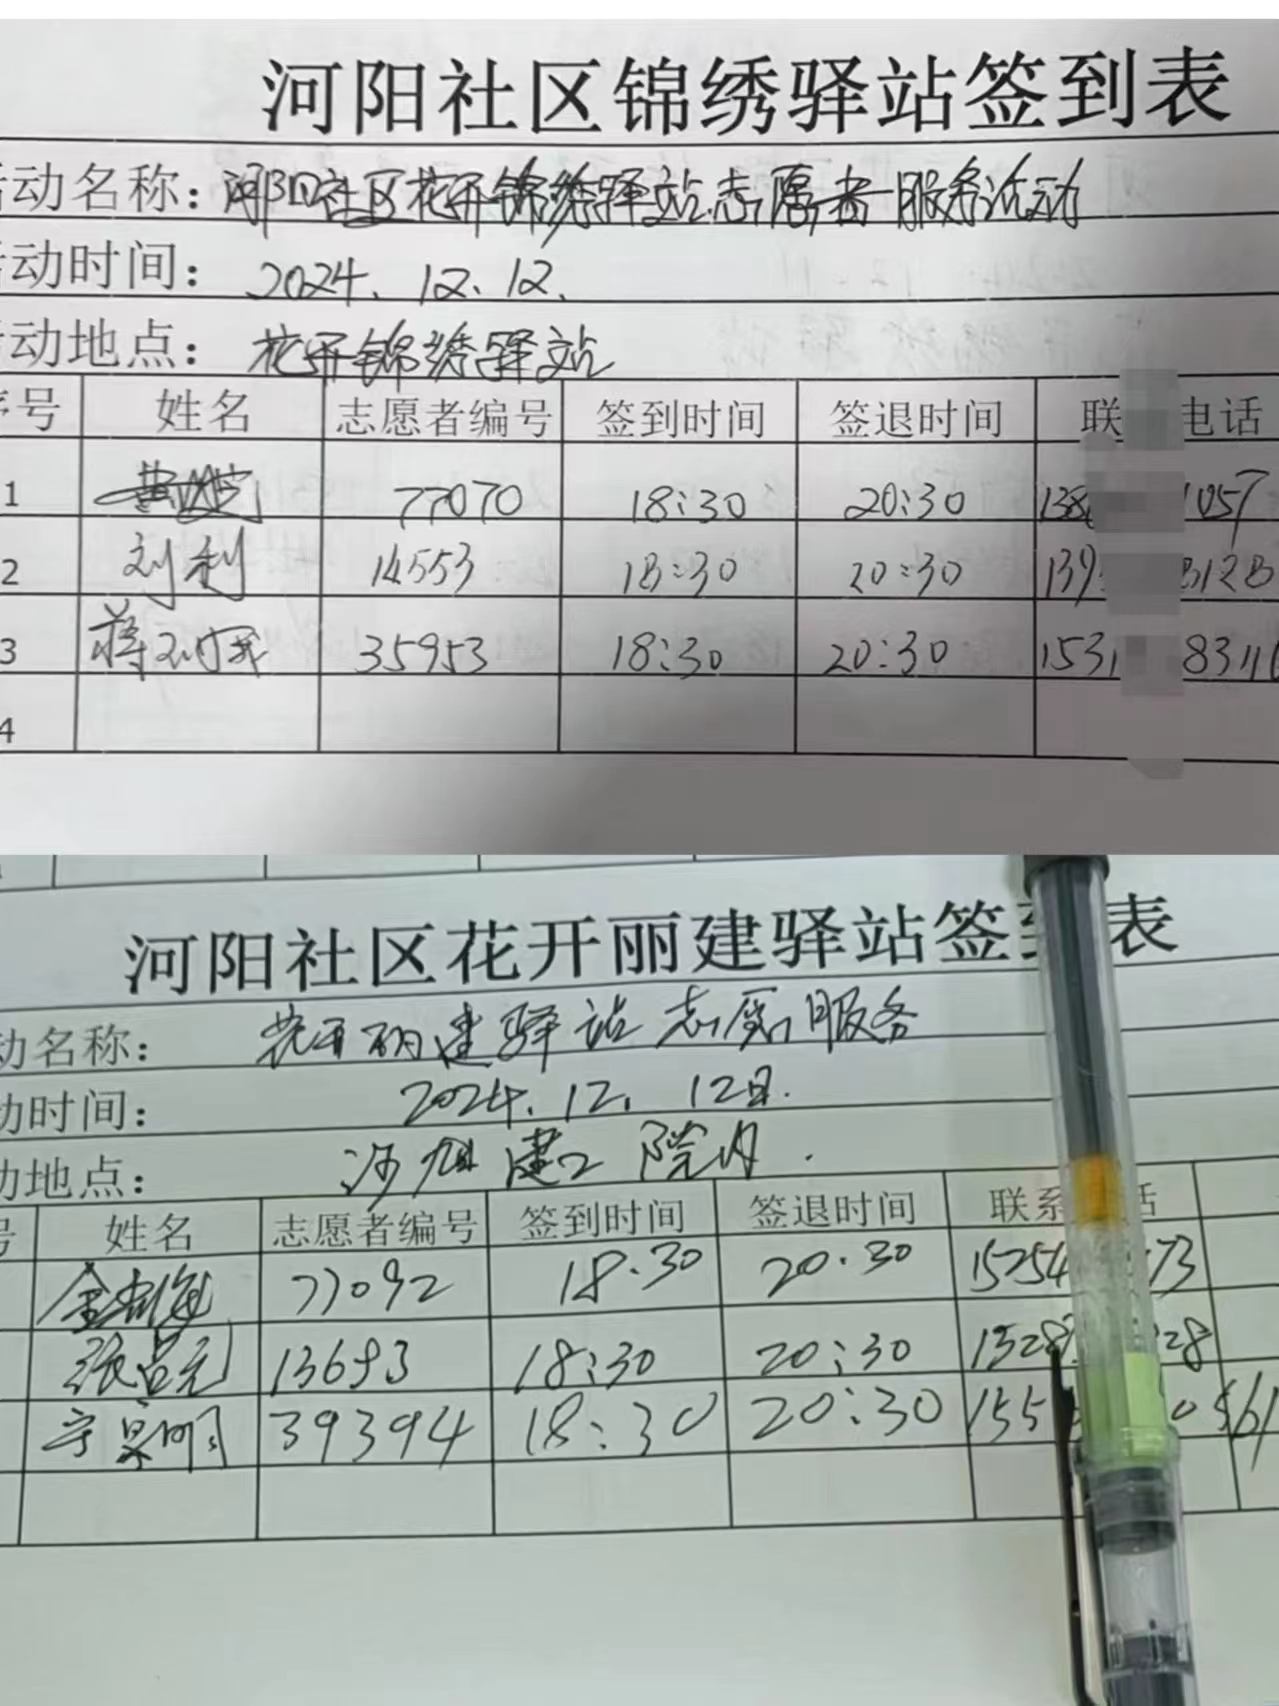 河阳社区锦绣驿站签到表
活动名称: 河阳社区花开锦绣驿站志愿者服务活动
活动时间: 2024.12.12.
活动地点: 花开锦绣驿站
序号 姓名 志愿者编号 签到时间 签退时间 联 电话
1 77070 18:30 20:30 138 1057
2 刘利 14553 18:30 20:30 139 3128
3 蒋 35953 18:30 20:30 1531 83116
4
河阳社区花开丽建驿站签到表
动名称: 花开丽建驿站志愿服务
动时间: 2024.12.12日.
动地点: 沙旭建工院内.
号 姓名 志愿者编号 签到时间 签退时间 联系 话
77092 18.30 20.30 15254 73
张吕元 13693 18:30 20:30 1328 28
39394 18:30 20:30 155 0561